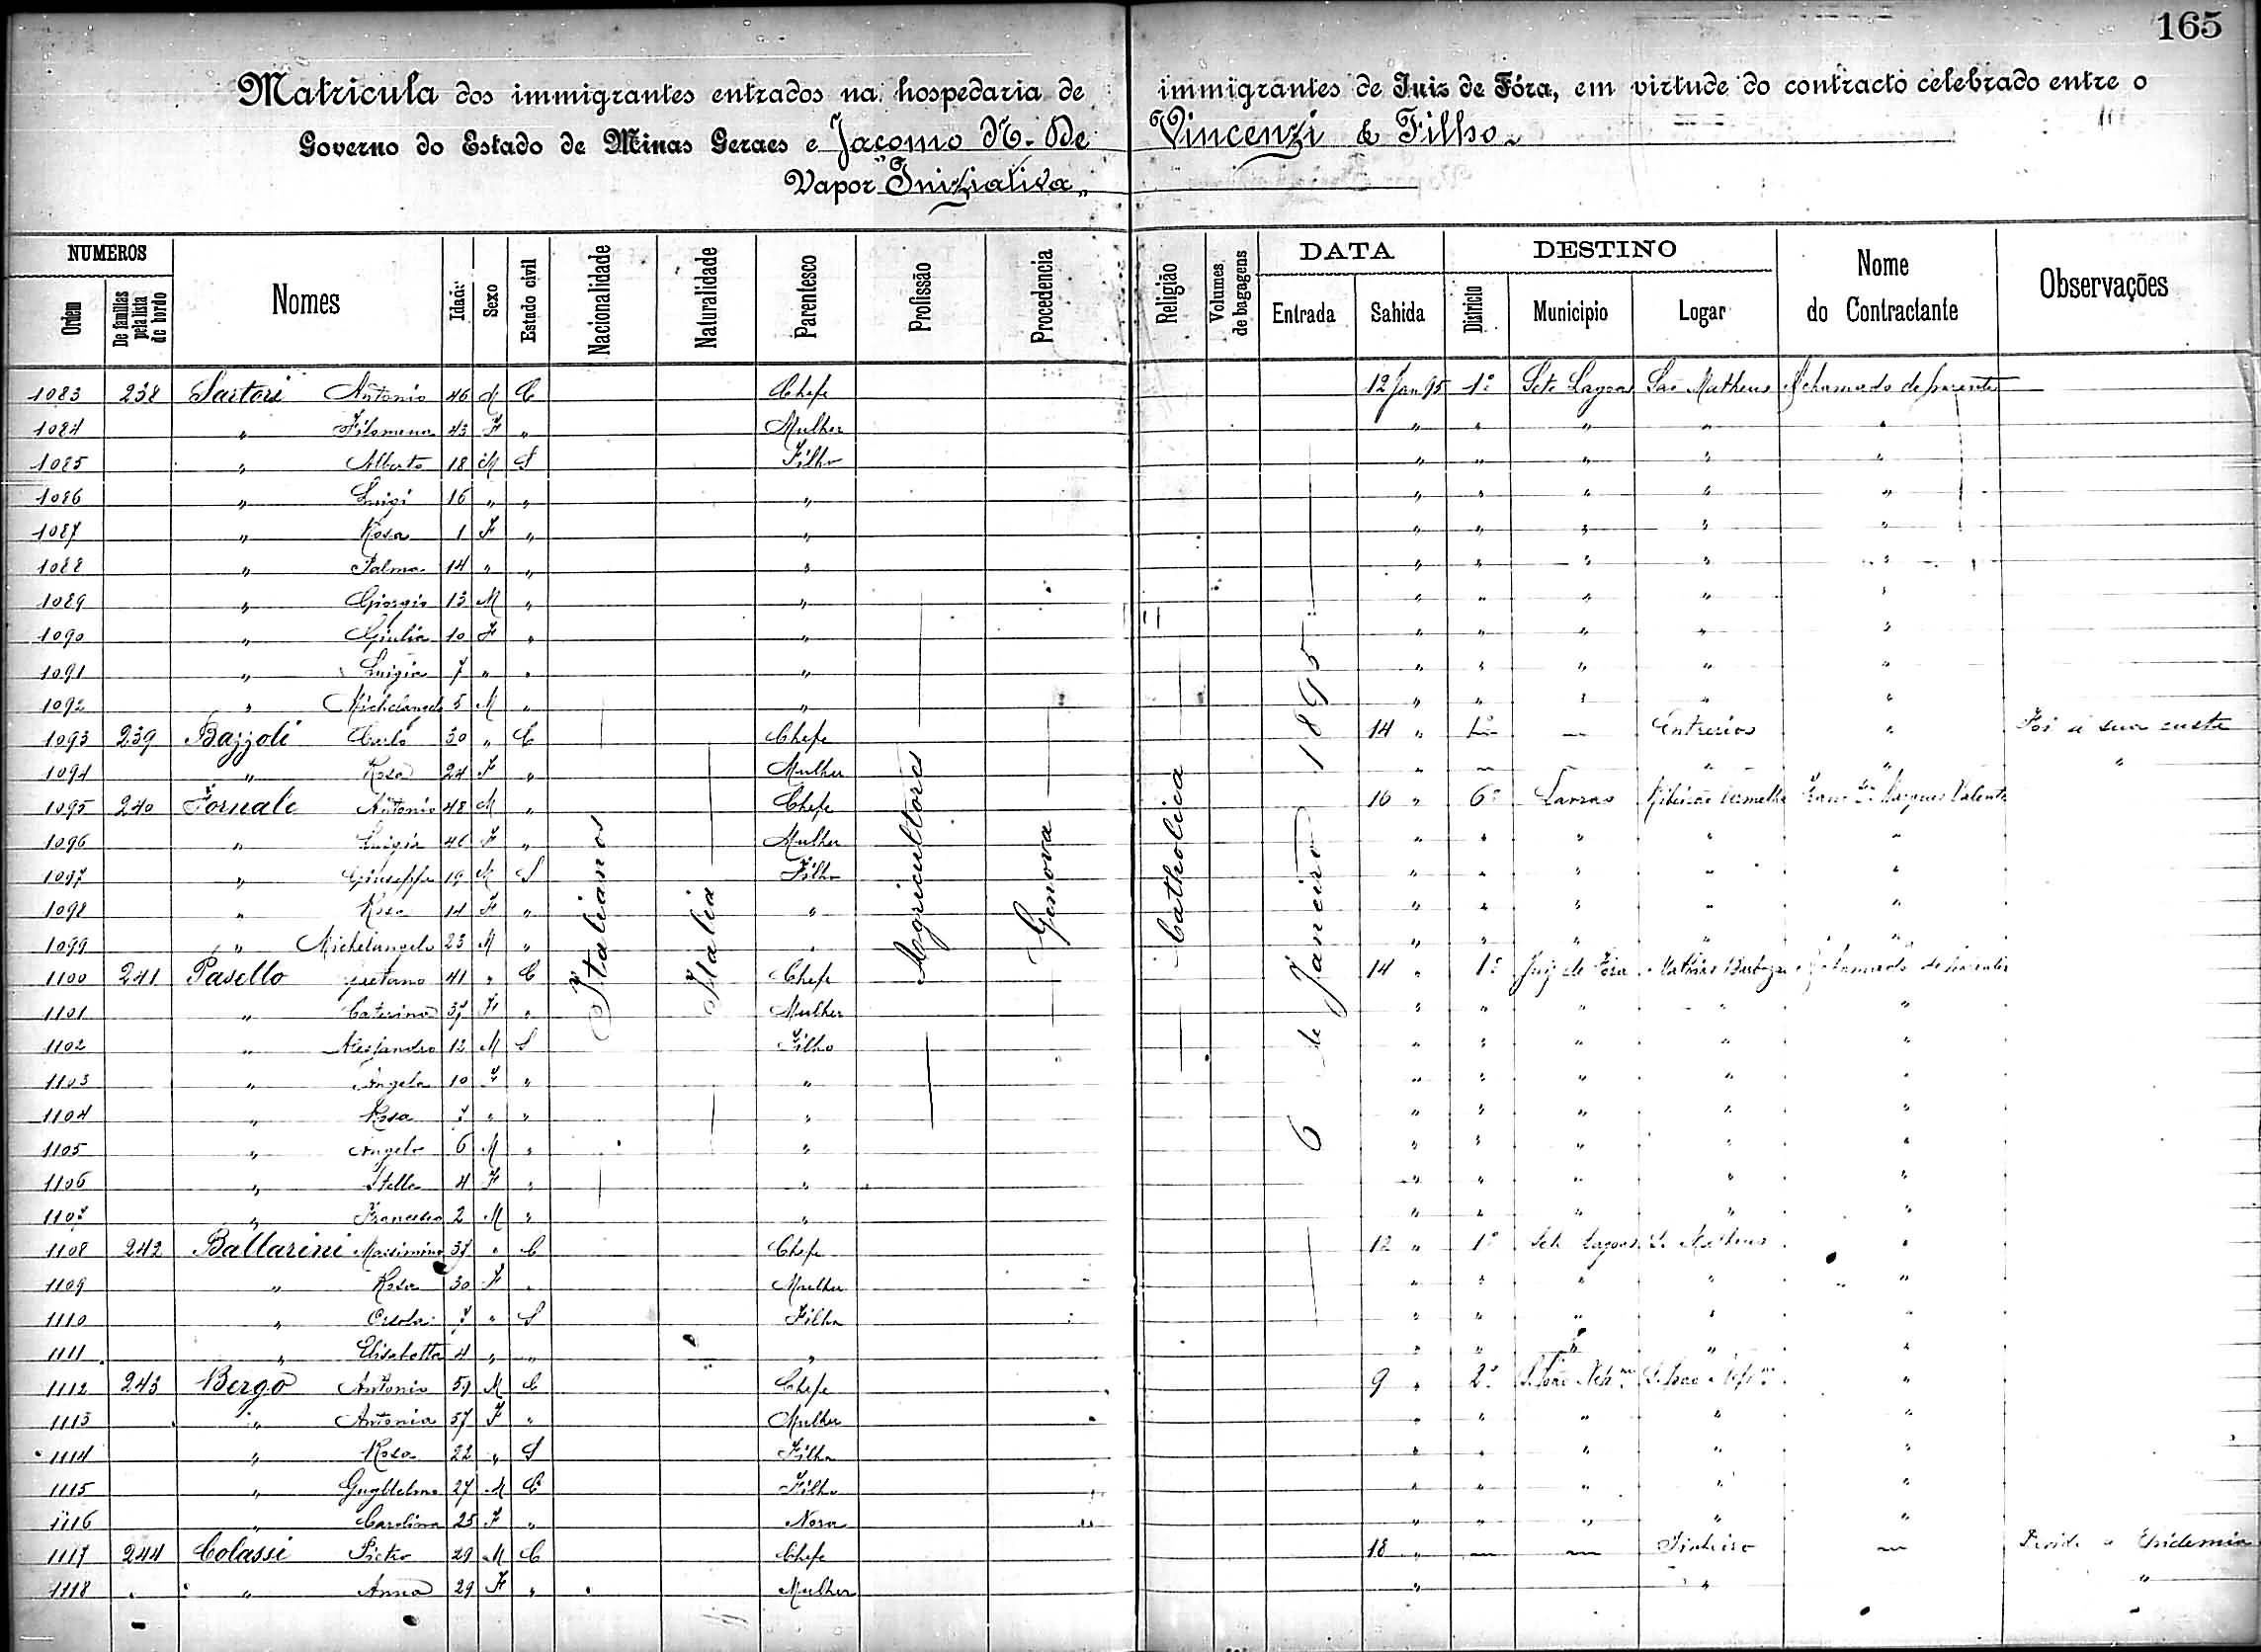 165
Matricula dos immigrantes entrados na hospedaria de immigrantes de Juiz de Fóra, em virtude do contracto celebrado entre o
Governo do Estado de Minas Geraes e Jacomo N. De Vincenzi & Filho
Vapor "Iniziativa"
NUMEROS DATA DESTINO
Ordem De familias pela lista de bordo Nomes Idade Sexo Estado civil Nacionalidade Naturalidade Parentesco Profissão Procedencia Religião Volumes de bagagens Entrada Sahida Districto Municipio Logar Nome do Contractante Observações
Italianos Italia Agricultores Genova Catholica 6 de Janeiro 1895
1083 238 Sartori Antonio 46 M C Chefe 12 Jan 95 1º Sete Lagoas São Matheus A chamado de parente
1084 " Filomena 43 F " Mulher " " " " "
1085 " Alberto 18 M S Filho " " " " "
1086 " Luigi 16 " " " " " " " "
1087 " Rosa 1 F " " " " " " "
1088 " Palma 14 " " " " " " " "
1089 " Giorgio 13 M " " " " " " "
1090 " Giulia 10 F " " " " " " "
1091 " Luigia 7 " " " " " " " "
1092 " Michelangelo 5 M " " " " " " "
1093 239 Bazzoli Carlo 30 " C Chefe 14 " 1º — Entrerios " Foi á sua custa
1094 " Rosa 24 F " Mulher " — — " " "
1095 240 Fornale Antonio 48 M " Chefe 16 " 6º Lavras Ribeirão Vermelho Marques Valente
1096 " Luigia 46 F " Mulher " " " " "
1097 " Giuseppe 19 M S Filho " " " " "
1098 " Rosa 14 F " " " " " " "
1099 " Michelangelo 23 M " " " " " " "
1100 241 Pasello Gaetano 41 " C Chefe 14 " 1º Juiz de Fóra Mathias Barboza A chamado de parentes
1101 " Caterina 37 F " Mulher " " " " "
1102 " Alessandro 12 M S Filho " " " " "
1103 " Angela 10 F " " " " " " "
1104 " Rosa 7 " " " " " " " "
1105 " Angelo 6 M " " " " " " "
1106 " Stella 4 F " " " " " " "
1107 " Francesco 2 M " " " " " " "
1108 242 Ballarini Massimino 37 " C Chefe 12 " 1º Sete Lagoas S. Matheus "
1109 " Rosa 30 F " Mulher " " " " "
1110 " 7 " S Filha " " " " "
1111 " Elisabetta 4 " " " " " " " "
1112 243 Bergo Antonio 59 M C Chefe 9 " 2º "
1113 " Antonia 57 F " Mulher " " " " "
1114 " Rosa 22 " S Filha " " " " "
1115 " Guglielmo 27 M C Filho " " " " "
1116 " Carolina 25 F " Nora " " " " "
1117 244 Colassi Pietro 29 M C Chefe 18 " — — Pinheiro — Epidemia
1118 " Anna 29 F " Mulher " " "